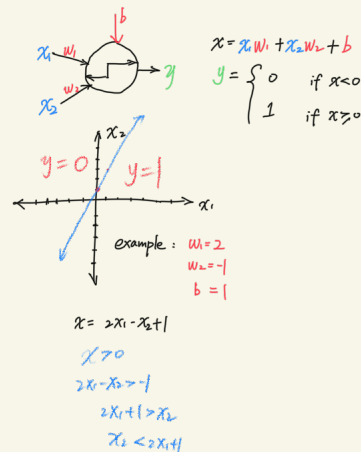 b
x₁ w₁
y
x₂ w₂
x = x₁w₁ + x₂w₂ + b
y = { 0 if x<0
1 if x≥0
x₂
y=0 y=1
x₁
example : w₁=2
w₂=-1
b=1
x= 2x₁-x₂+1
x>0
2x₁-x₂>-1
2x₁+1>x₂
x₂<2x₁+1